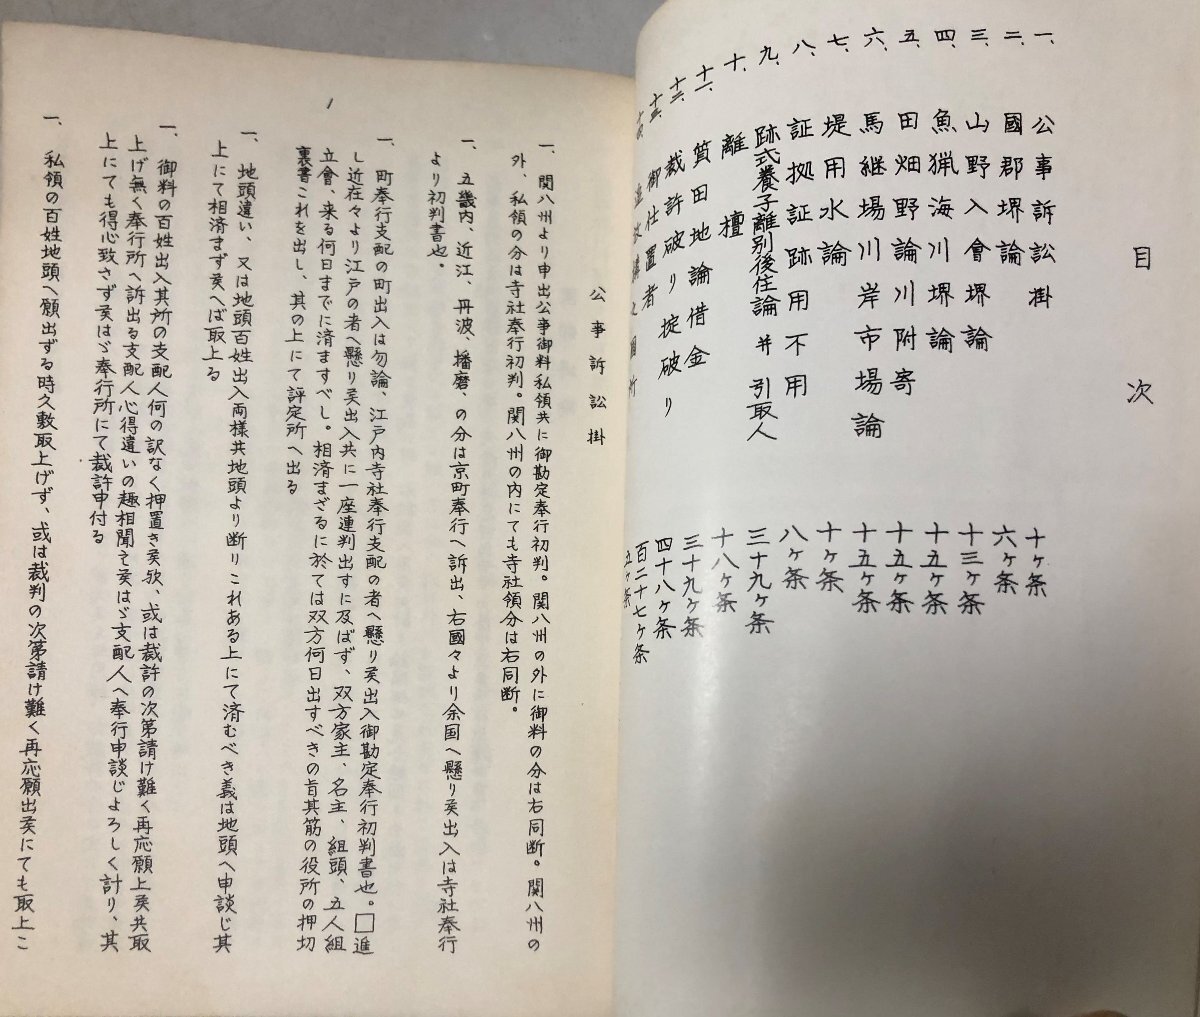 目次
一、公事訴訟掛 十ヶ条
二、國郡堺論 六ヶ条
三、山野入會堺論 十三ヶ条
四、魚猟海川堺論 十五ヶ条
五、田畑野論川附寄 十五ヶ条
六、馬継場川岸市場論 十五ヶ条
七、堤用水論 十ヶ条
八、証拠証跡用不用 八ヶ条
九、跡式養子離別後住論 并 引取人 三十九ヶ条
十、離檀 十八ヶ条
十一、質田地論借金 三十九ヶ条
十二、裁許破り掟破り 四十八ヶ条
十三、御仕置者 百二十七ヶ条
五ヶ条
1
公事訴訟掛
一、関八州より申出公事御料私領共に御勘定奉行初判。関八州の外に御料の分は右同断。関八州の
外、私領の分は寺社奉行初判。関八州の内にても寺社領分は右同断。
一、五畿内、近江、丹波、播磨、の分は京町奉行へ訴出、右國々より余国へ懸り候出入は寺社奉行
より初判書也。
一、町奉行支配の町出入は勿論、江戸内寺社奉行支配の者へ懸り候出入御勘定奉行初判書也。□進
し近在々より江戸の者へ懸り候出入共に一座連判出すに及ばず、双方家主、名主、組頭、五人組
立會、来る何日までに済ますべし。相済まざるに於ては双方何日出すべきの旨其筋の役所の押切
裏書これを出し、其の上にて評定所へ出る
一、地頭違い、又は地頭百姓出入両様共地頭より断りこれある上にて済むべき義は地頭へ申談じ其
上にて相済まず候へば取上る
一、御料の百姓出入其所の支配人何の訳なく押置き候歟、或は裁許の次第請け難く再応願上候共取
上げ無く奉行所へ訴出る支配人心得違いの趣相聞え候はゞ支配人へ奉行申談じよろしく計り、其
上にても得心致さず候はゞ奉行所にて裁許申付る
一、私領の百姓地頭へ願出ずる時久敷取上げず、或は裁判の次第請け難く再応願出候にても取上こ